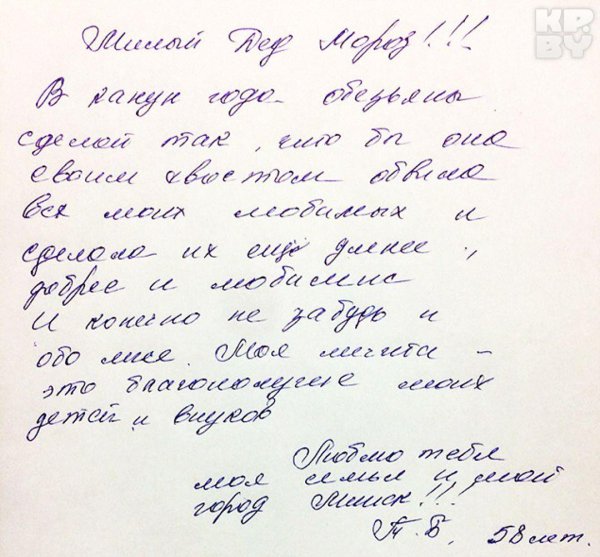 KP.
BY
Милый Дед Мороз!!!
В канун года обезьяны
сделай так, что бы она
своим хвостом обвила
всех моих любимых и
сделала их ещё умнее,
добрее и любимые
И конечно не забудь и
обо мне. Моя мечта -
это благополучие моих
детей и внуков
Люблю тебя
моя семья и мой
город Минск!!!
Т.Б. 58 лет.